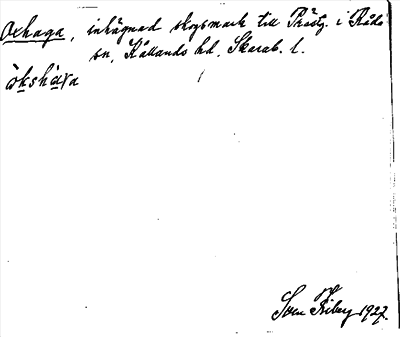 Oxhaga, inhägnad skogsmark till Prästg. i Råda
sn, Kållands hd, Skarab. l.
Sven Friberg 1927.